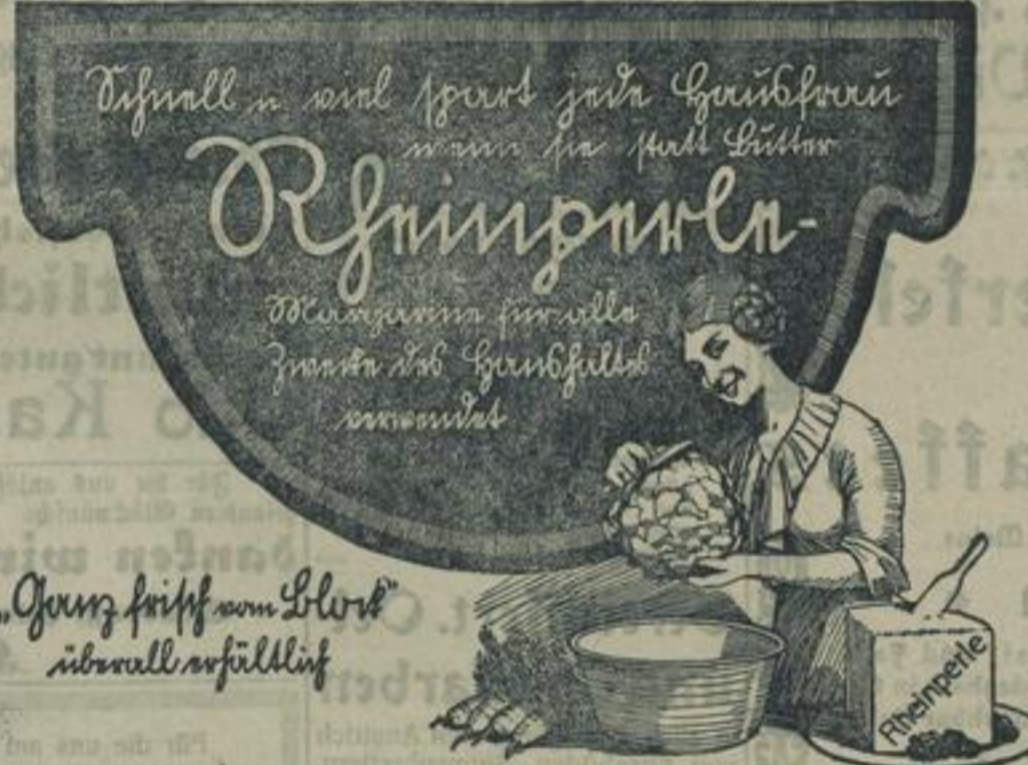 Schnell u viel spart jede Hausfrau
wenn sie statt Butter
Rheinperle-
Margarine für alle
Zwecke des Haushaltes
verwendet
„Ganz frisch vom Block"
überall erhältlich
Rheinperle